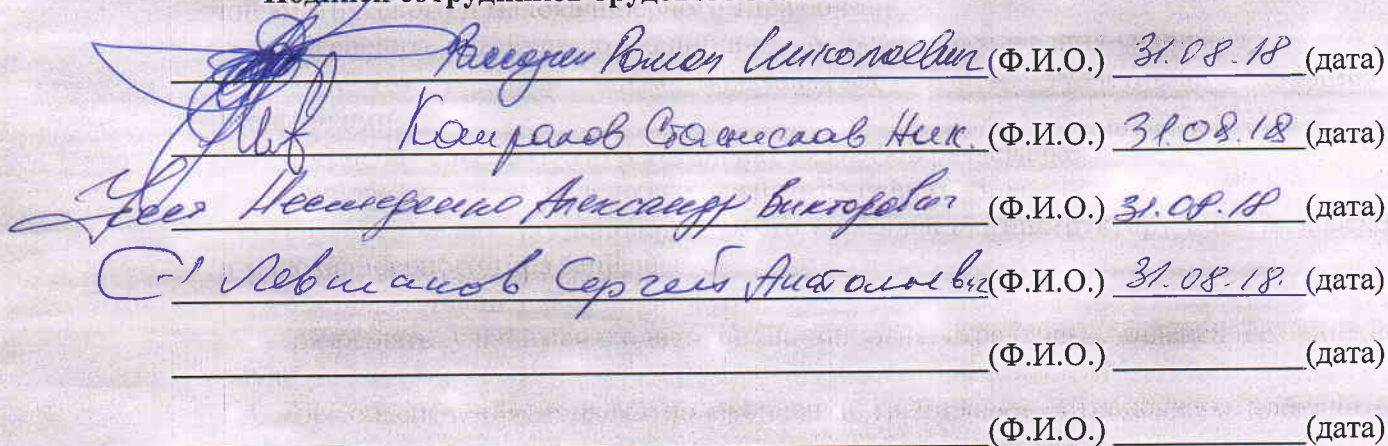 Подписи сотрудников
Роман Николаевич (Ф.И.О.) 31.08.18 (дата)
Станислав Ник. (Ф.И.О.) 31.08.18 (дата)
Нестеренко Александр Викторович (Ф.И.О.) 31.08.18 (дата)
Левшаков Сергей Анатольевич (Ф.И.О.) 31.08.18. (дата)
(Ф.И.О.) (дата)
(Ф.И.О.) (дата)